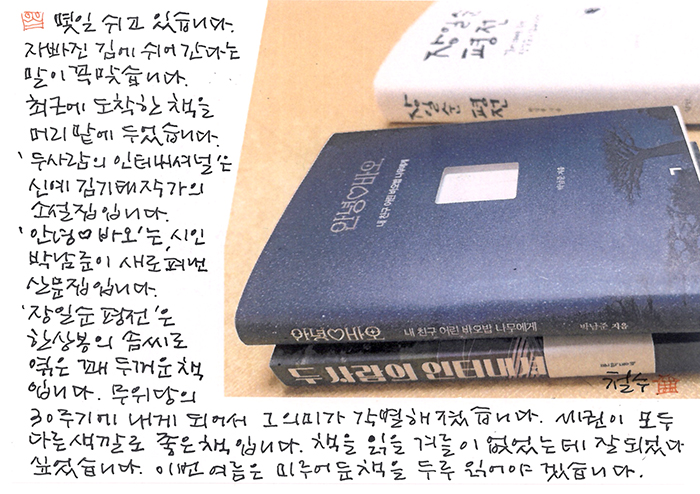 몇일 쉬고 있습니다.
자빠진 김에 쉬어 간다는
말이 꼭맞습니다.
최근에 도착한 책을
머리 맡에 두었습니다.
'두사람의 인터내셔널'은
신예 김기태작가의
소설집입니다.
'안녕♡바오'는, 시인
박남준이 새로 펴낸
산문집입니다.
'장일순 평전'은
한상봉의 솜씨로
엮은 꽤 두꺼운책
입니다. 무위당의
30주기에 내게 되어서 그의미가 각별해졌습니다. 세권이 모두
다른색깔로 좋은책입니다. 책을 읽을 겨를이 없었는데 잘 되었다
싶었습니다. 이번 여름은 미루어둔책을 두루 읽어야 겠습니다.
장일순
평전
장일순 평전
안녕♡바오,
내 친구 어린 바오밥 나무에게
박남준 지음
안녕♡바오
내 친구 어린 바오밥 나무에게
박남준 지음
두 사람의 인터내셔널
철수